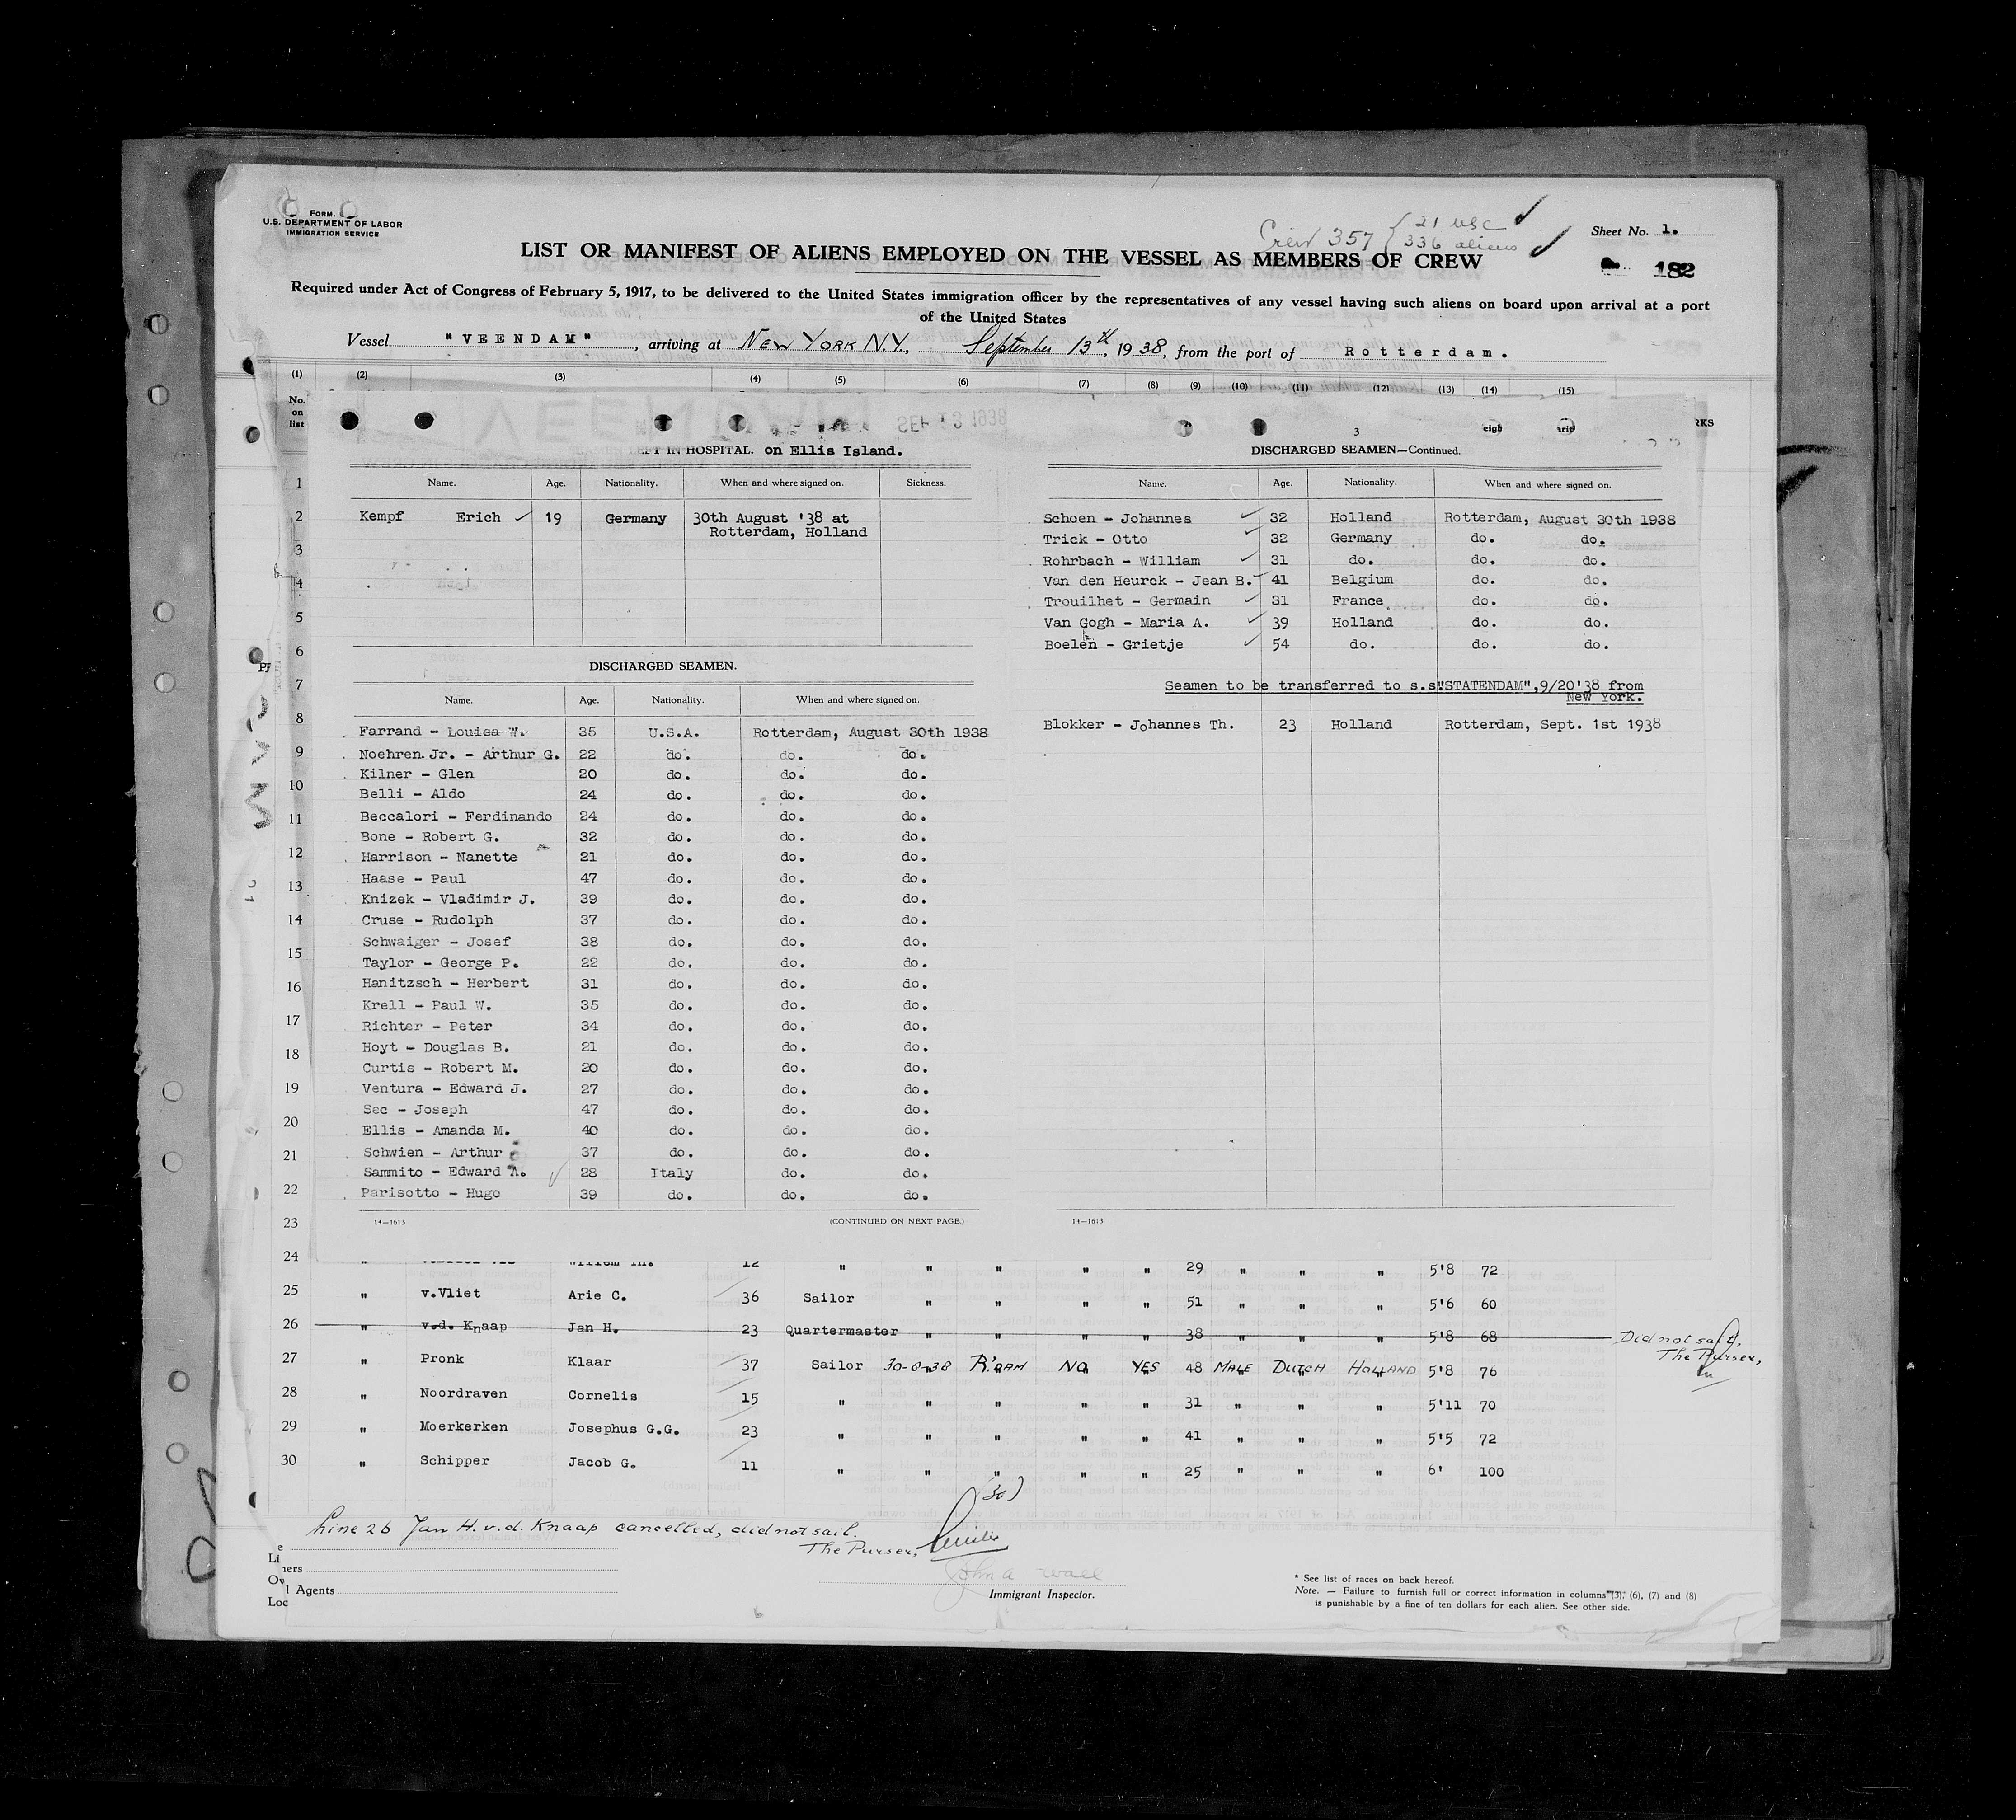 FORM.
U.S. DEPARTMENT OF LABOR
IMMIGRATION SERVICE
Crew 357 { 21 USC
336 aliens
Sheet No. 1.
182
LIST OR MANIFEST OF ALIENS EMPLOYED ON THE VESSEL AS MEMBERS OF CREW
Required under Act of Congress of February 5, 1917, to be delivered to the United States immigration officer by the representatives of any vessel having such aliens on board upon arrival at a port
of the United States
Vessel "VEENDAM", arriving at NEW YORK N.Y., September 13th, 1938, from the port of Rotterdam.
(1) (2) (3) (4) (5) (6) (7) (8) (9) (10) (11) (12) (13) (14) (15)
No.
on
list
LEFT IN HOSPITAL. on Ellis Island.
Name. Age. Nationality. When and where signed on. Sickness.
Kempf Erich 19 Germany 30th August '38 at
Rotterdam, Holland
DISCHARGED SEAMEN.
Name. Age. Nationality. When and where signed on.
Farrand - Louisa W. 35 U.S.A. Rotterdam, August 30th 1938
Noehren Jr. - Arthur G. 22 do. do. do.
Kilner - Glen 20 do. do. do.
Belli - Aldo 24 do. do. do.
Beccalori - Ferdinando 24 do. do. do.
Bone - Robert G. 32 do. do. do.
Harrison - Nanette 21 do. do. do.
Haase - Paul 47 do. do. do.
Knizek - Vladimir J. 39 do. do. do.
Cruse - Rudolph 37 do. do. do.
Schwaiger - Josef 38 do. do. do.
Taylor - George P. 22 do. do. do.
Hanitzsch - Herbert 31 do. do. do.
Krell - Paul W. 35 do. do. do.
Richter - Peter 34 do. do. do.
Hoyt - Douglas B. 21 do. do. do.
Curtis - Robert M. 20 do. do. do.
Ventura - Edward J. 27 do. do. do.
Sec - Joseph 47 do. do. do.
Ellis - Amanda M. 40 do. do. do.
Schwien - Arthur 37 do. do. do.
Sammito - Edward A. 28 Italy do. do.
Parisotto - Hugo 39 do. do. do.
14—1613 (CONTINUED ON NEXT PAGE.)
3
DISCHARGED SEAMEN—Continued.
Name. Age. Nationality. When and where signed on.
Schoen - Johannes 32 Holland Rotterdam, August 30th 1938
Trick - Otto 32 Germany do. do.
Rohrbach - William 31 do. do. do.
Van den Heurck - Jean B. 41 Belgium do. do.
Trouilhet - Germain 31 France do. do.
Van Gogh - Maria A. 39 Holland do. do.
Boelen - Grietje 54 do. do. do.
Seamen to be transferred to s.s."STATENDAM",9/20'38 from
New York.
Blokker - Johannes Th. 23 Holland Rotterdam, Sept. 1st 1938
14—1613
1
2
3
4
5
6
7
8
9
10
11
12
13
14
15
16
17
18
19
20
21
22
23
24 " 12 " " " " " 29 " " " 5'8 72
25 " v.Vliet Arie C. 36 Sailor " " " " 51 " " " 5'6 60
26 " v.d. Knaap Jan H. 23 Quartermaster " " " " 38 " " " 5'8 68 Did not sail,
The Purser,
27 " Pronk Klaar 37 Sailor 30-8-38 R'DAM NO YES 48 MALE DUTCH HOLLAND 5'8 76
28 " Noordraven Cornelis 15 " " " " " 31 " " " 5'11 70
29 " Moerkerken Josephus G.G. 23 " " " " " 41 " " " 5'5 72
30 " Schipper Jacob G. 11 " " " " " 25 " " " 6' 100
(30)
Line 26 Jan H. v.d. Knaap cancelled, did not sail.
The Purser,
John A Wall
Immigrant Inspector.
Agents
* See list of races on back hereof.
Note. — Failure to furnish full or correct information in columns (3), (6), (7) and (8)
is punishable by a fine of ten dollars for each alien. See other side.